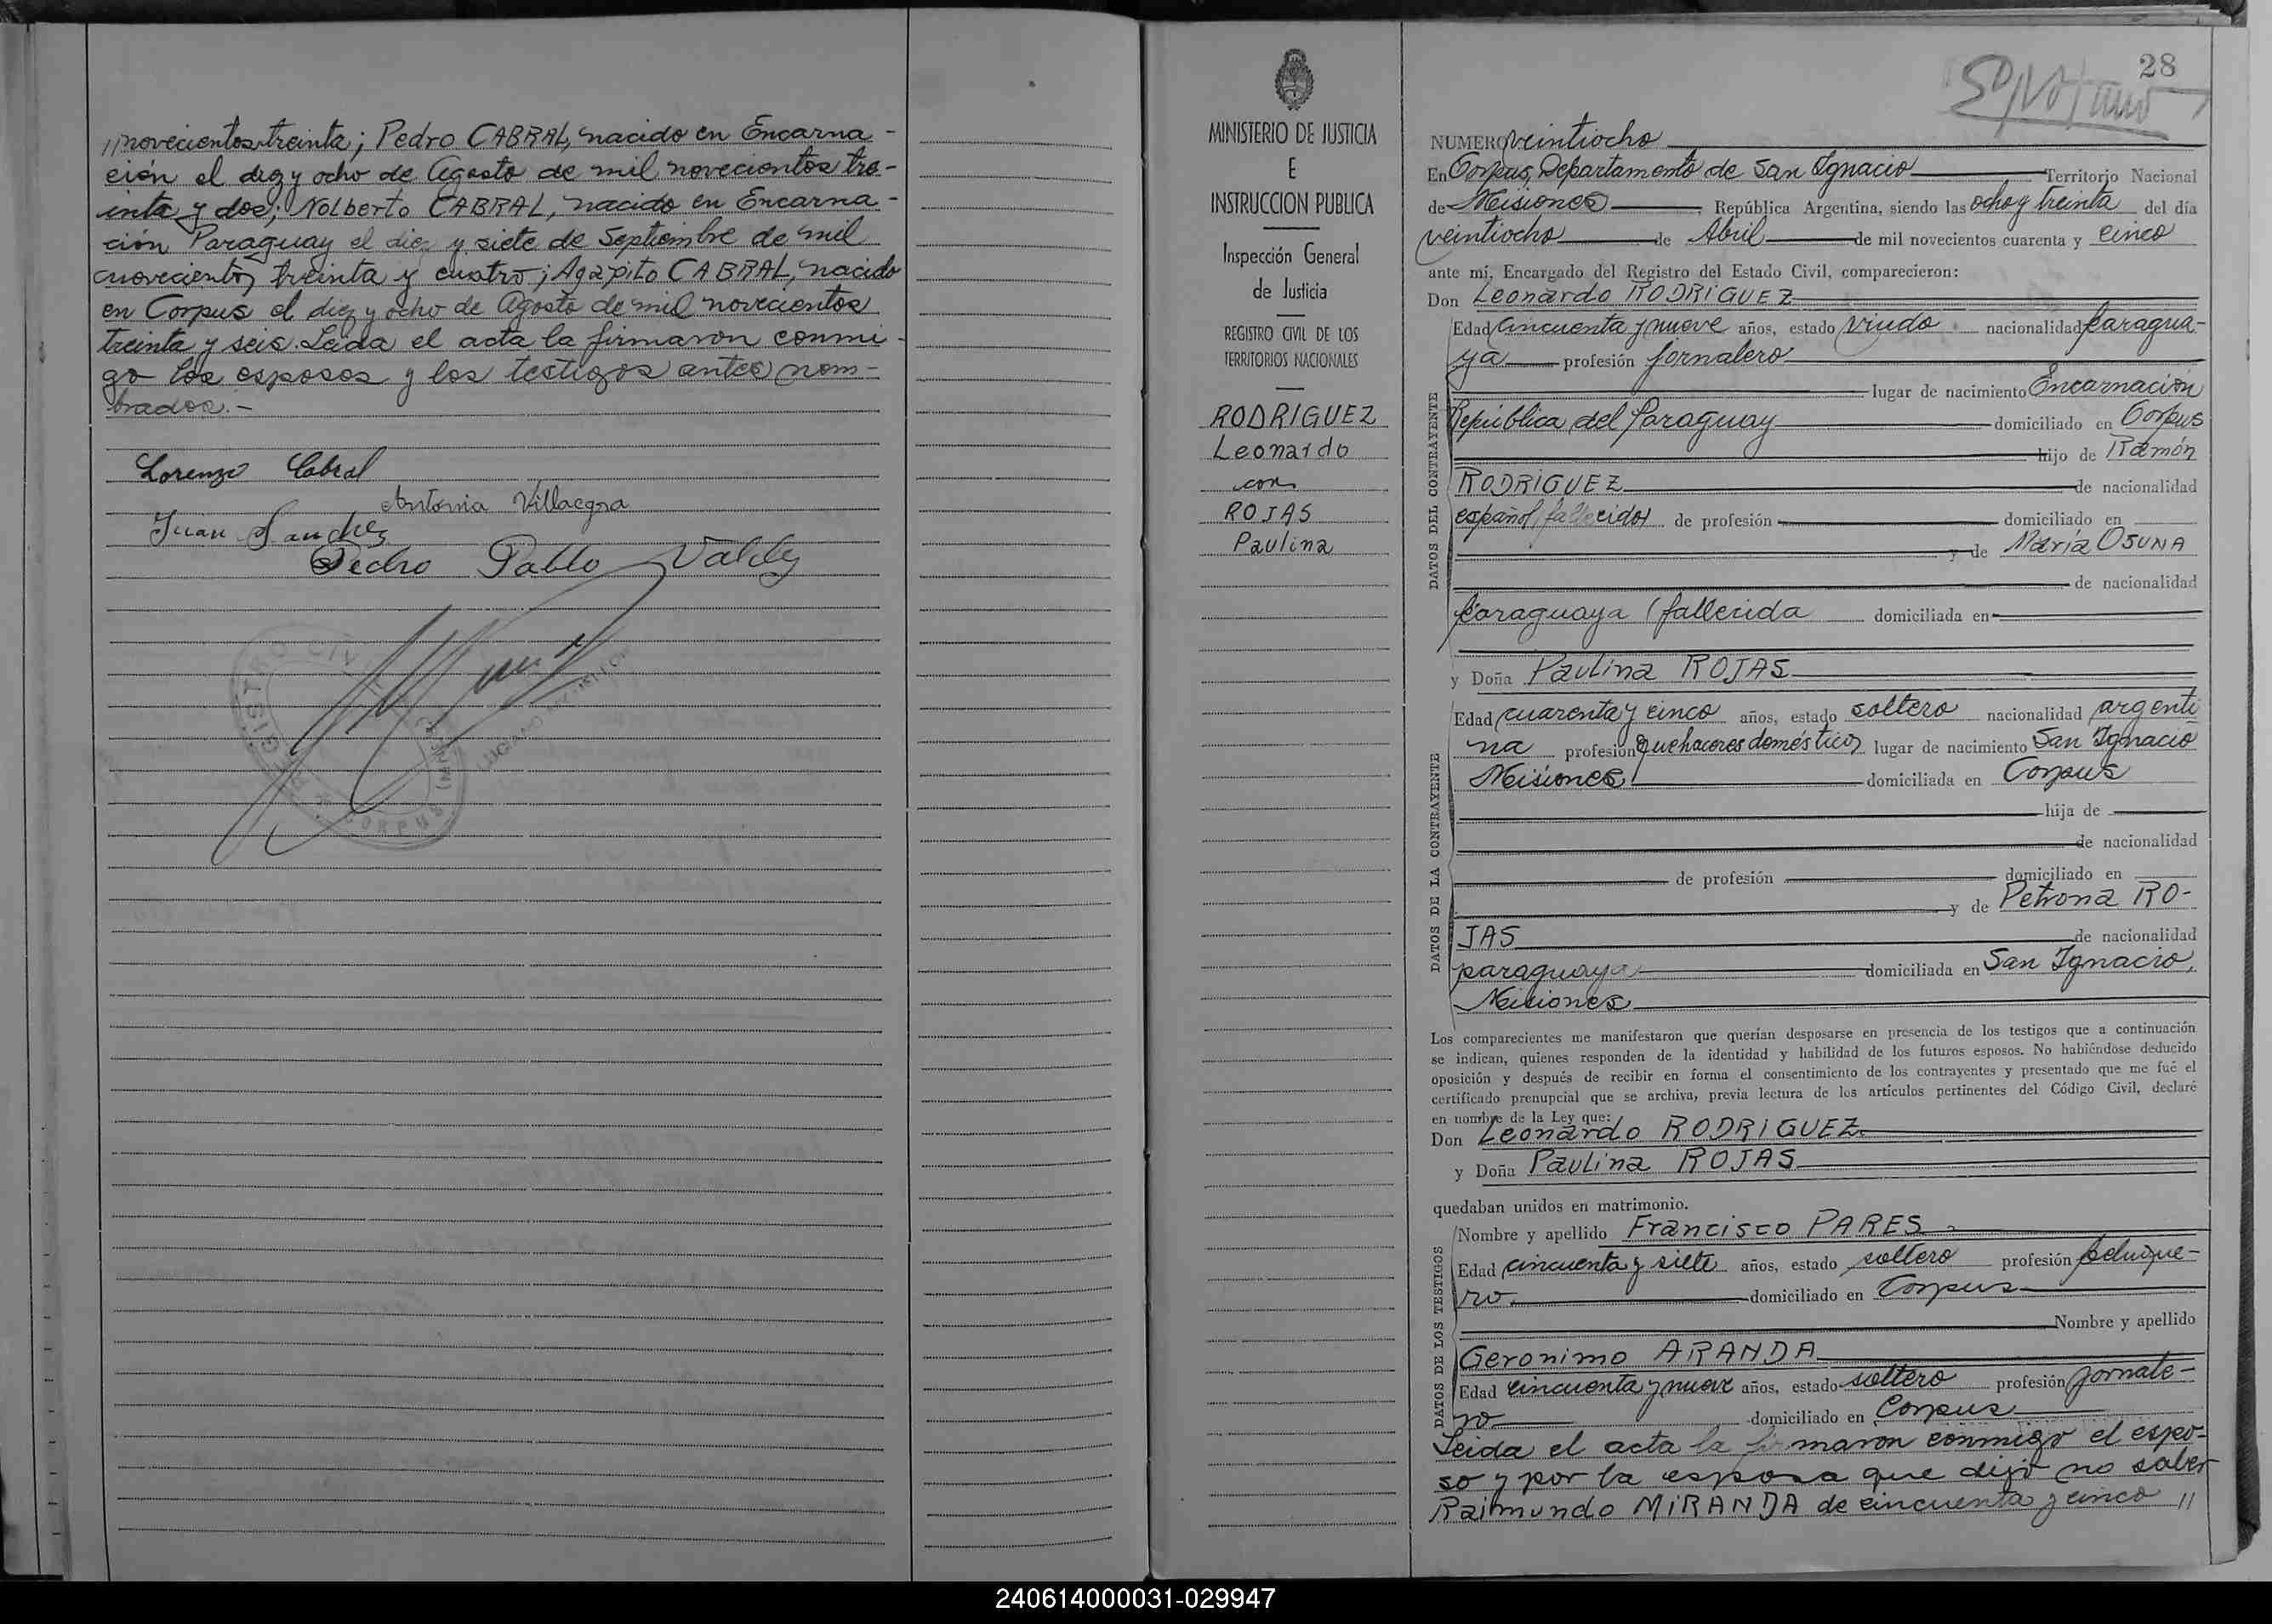 //novecientos treinta; Pedro CABRAL, nacido en Encarna-
ción el diez y ocho de Agosto de mil novecientos tre-
inta y dos; Nolberto CABRAL, nacido en Encarna-
ción Paraguay el diez y siete de Septiembre de mil
novecientos treinta y cuatro; Agapito CABRAL, nacido
en Corpus el diez y ocho de Agosto de mil novecientos
treinta y seis. Leida el acta la firmaron conmi-
go los esposos y los testigos antes nom-
brados.-
Lorenzo Cabral
Antonia Villaegra
Juan Sanchez
Pedro Pablo Valdez
MINISTERIO DE JUSTICIA
E
INSTRUCCION PUBLICA
Inspección General
de Justicia
REGISTRO CIVIL DE LOS
TERRITORIOS NACIONALES
RODRIGUEZ
Leonardo
con
ROJAS
Paulina
28
NUMERO veintiocho
En Corpus, Departamento de San Ignacio Territorio Nacional
de Misiones, República Argentina, siendo las ocho y treinta del día
veintiocho de Abril de mil novecientos cuarenta y cinco
ante mí, Encargado del Registro del Estado Civil, comparecieron:
Don Leonardo RODRIGUEZ
DATOS DEL CONTRAYENTE
Edad cincuenta y nueve años, estado viudo nacionalidad paragua-
ya profesión jornalero
lugar de nacimiento Encarnación
República del Paraguay domiciliado en Corpus
hijo de Ramón
RODRIGUEZ de nacionalidad
español (fallecido) de profesión domiciliado en
y de María OSUNA
de nacionalidad
paraguaya (fallecida domiciliada en
y Doña Paulina ROJAS
DATOS DE LA CONTRAYENTE
Edad cuarenta y cinco años, estado soltero nacionalidad argenti
na profesión quehaceres domésticos lugar de nacimiento San Ignacio
Misiones domiciliada en Corpus
hija de
de nacionalidad
de profesión domiciliado en
y de Petrona RO-
JAS de nacionalidad
paraguaya domiciliada en San Ignacio,
Misiones
Los comparecientes me manifestaron que querían desposarse en presencia de los testigos que a continuación
se indican, quienes responden de la identidad y habilidad de los futuros esposos. No habiéndose deducido
oposición y después de recibir en forma el consentimiento de los contrayentes y presentado que me fué el
certificado prenupcial que se archiva, previa lectura de los artículos pertinentes del Código Civil, declaré
en nombre de la Ley que:
Don Leonardo RODRIGUEZ
y Doña Paulina ROJAS
quedaban unidos en matrimonio.
DATOS DE LOS TESTIGOS
Nombre y apellido Francisco PARES
Edad cincuenta y siete años, estado soltero profesión peluque-
ro domiciliado en Corpus
Nombre y apellido
Geronimo ARANDA
Edad cincuenta y nueve años, estado soltero profesión jornale-
ro domiciliado en Corpus
Leida el acta la firmaron conmigo el espo-
so y por la esposa que dijo no saber
Raimundo MIRANDA de cincuenta y cinco //
240614000031-029947